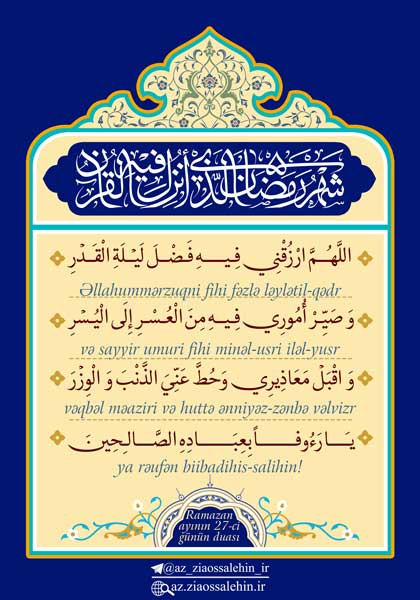 شهر رمضان الذي أنزل فيه القرآن
اللَّهُمَّ ارْزُقْنِي فِيهِ فَضْلَ لَيْلَةِ الْقَدْرِ
Əllahummərzuqni fihi fəzlə ləylətil-qədr
وَ صَيِّرْ أُمُورِي فِيهِ مِنَ الْعُسْرِ إِلَى الْيُسْرِ
və sayyir umuri fihi minəl-usri iləl-yusr
وَ اقْبَلْ مَعَاذِيرِي وَ حُطَّ عَنِّيَ الذَّنْبَ وَ الْوِزْرَ
vəqbəl məaziri və huttə ənniyəz-zənbə vəlvizr
يَا رَءُوفاً بِعِبَادِهِ الصَّالِحِينَ
ya rəufən biibadihis-salihin!
Ramazan
ayının 27-ci
günün duası
@az_ziaossalehin_ir
az.ziaossalehin.ir